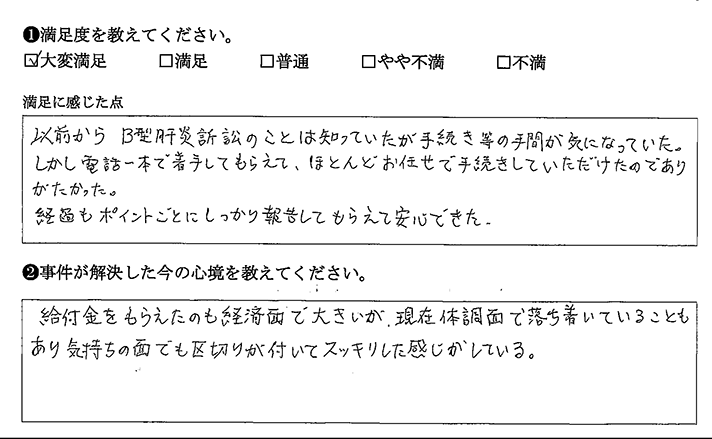 ❶満足度を教えてください。
☑大変満足 □満足 □普通 □やや不満 □不満
満足に感じた点
以前から B型肝炎訴訟のことは知っていたが手続き等の手間が気になっていた。
しかし電話一本で着手してもらえて、ほとんどお任せで手続きしていただけたのであり
がたかった。
経過もポイントごとにしっかり報告してもらえて安心できた。
❷事件が解決した今の心境を教えてください。
給付金をもらえたのも経済面で大きいが、現在体調面で落ち着いていることも
あり気持ちの面でも区切りが付いてスッキリした感じがしている。